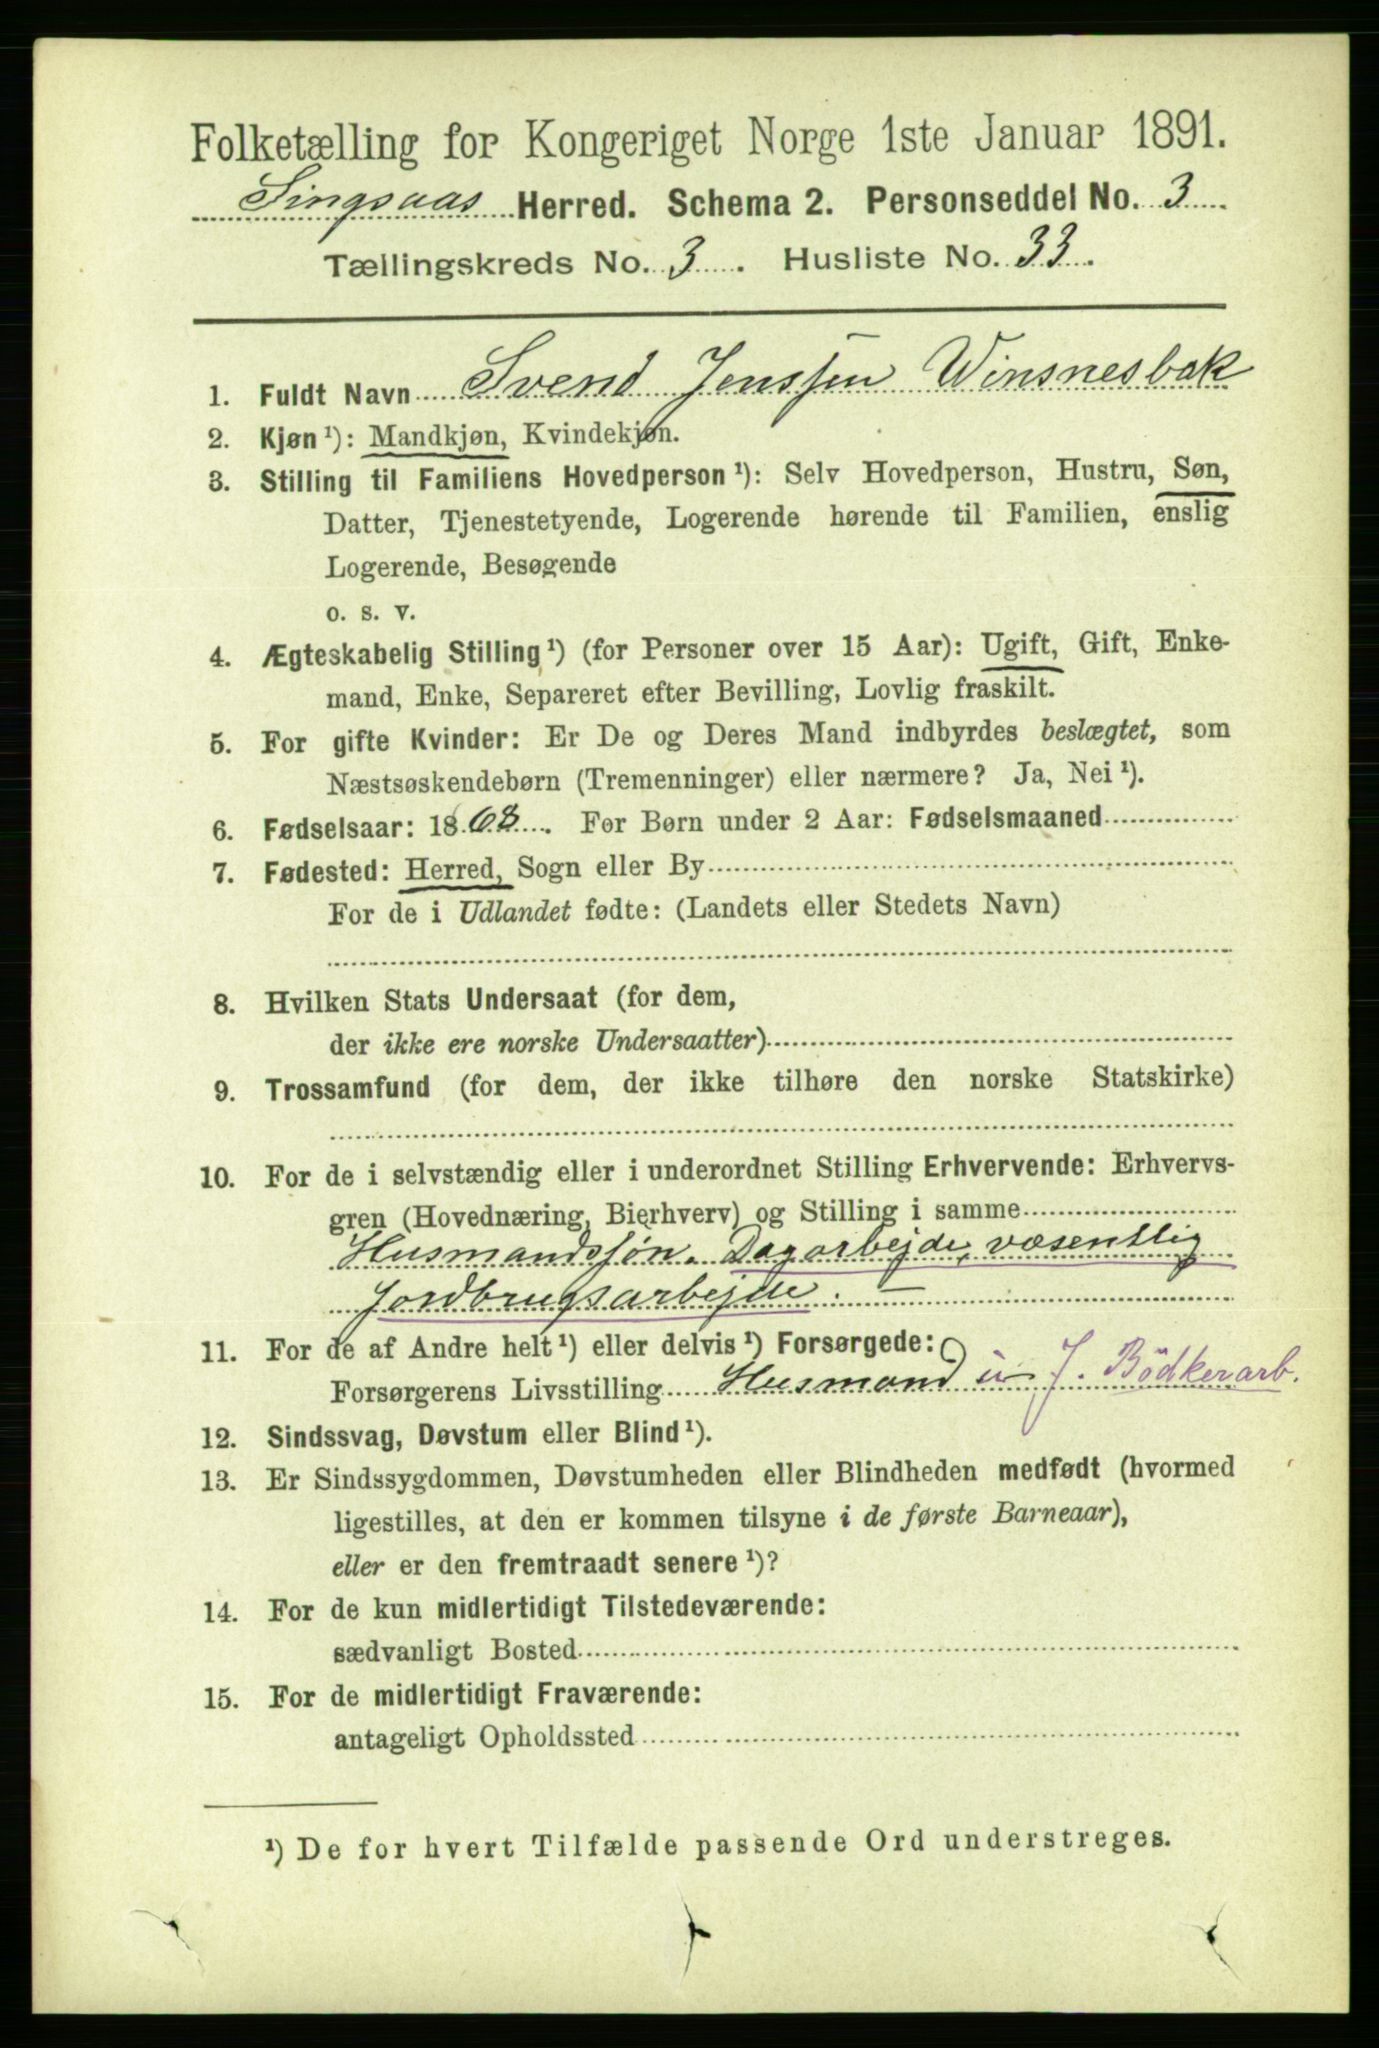 Folketælling for Kongeriget Norge 1ste Januar 1891.
Singsaas Herred. Schema 2. Personseddel No. 3
Tællingskreds No. 3. Husliste No. 33.
1. Fuldt Navn Svend Jenssen Winsnesbak
2. Kjøn¹): Mandkjøn, Kvindekjøn.
3. Stilling til Familiens Hovedperson¹): Selv Hovedperson, Hustru, Søn,
Datter, Tjenestetyende, Logerende hørende til Familien, enslig
Logerende, Besøgende
o. s. v.
4. Ægteskabelig Stilling¹) (for Personer over 15 Aar): Ugift, Gift, Enke-
mand, Enke, Separeret efter Bevilling, Lovlig fraskilt.
5. For gifte Kvinder: Er De og Deres Mand indbyrdes beslægtet, som
Næstsøskendebørn (Tremenninger) eller nærmere? Ja, Nei¹).
6. Fødselsaar: 1868. For Børn under 2 Aar: Fødselsmaaned
7. Fødested: Herred, Sogn eller By
For de i Udlandet fødte: (Landets eller Stedets Navn)
8. Hvilken Stats Undersaat (for dem,
der ikke ere norske Undersaatter)
9. Trossamfund (for dem, der ikke tilhøre den norske Statskirke)
10. For de i selvstændig eller i underordnet Stilling Erhvervende: Erhvervs-
gren (Hovednæring, Bierhverv) og Stilling i samme
Husmandssön. Dagarbejde, væsentlig
Jordbrugsarbejde. —
11. For de af Andre helt¹) eller delvis¹) Forsørgede:
Forsørgerens Livsstilling Husmand u J. Bödkerarb.
12. Sindssvag, Døvstum eller Blind¹).
13. Er Sindssygdommen, Døvstumheden eller Blindheden medfødt (hvormed
ligestilles, at den er kommen tilsyne i de første Barneaar),
eller er den fremtraadt senere¹)?
14. For de kun midlertidigt Tilstedeværende:
sædvanligt Bosted
15. For de midlertidigt Fraværende:
antageligt Opholdssted
¹) De for hvert Tilfælde passende Ord understreges.